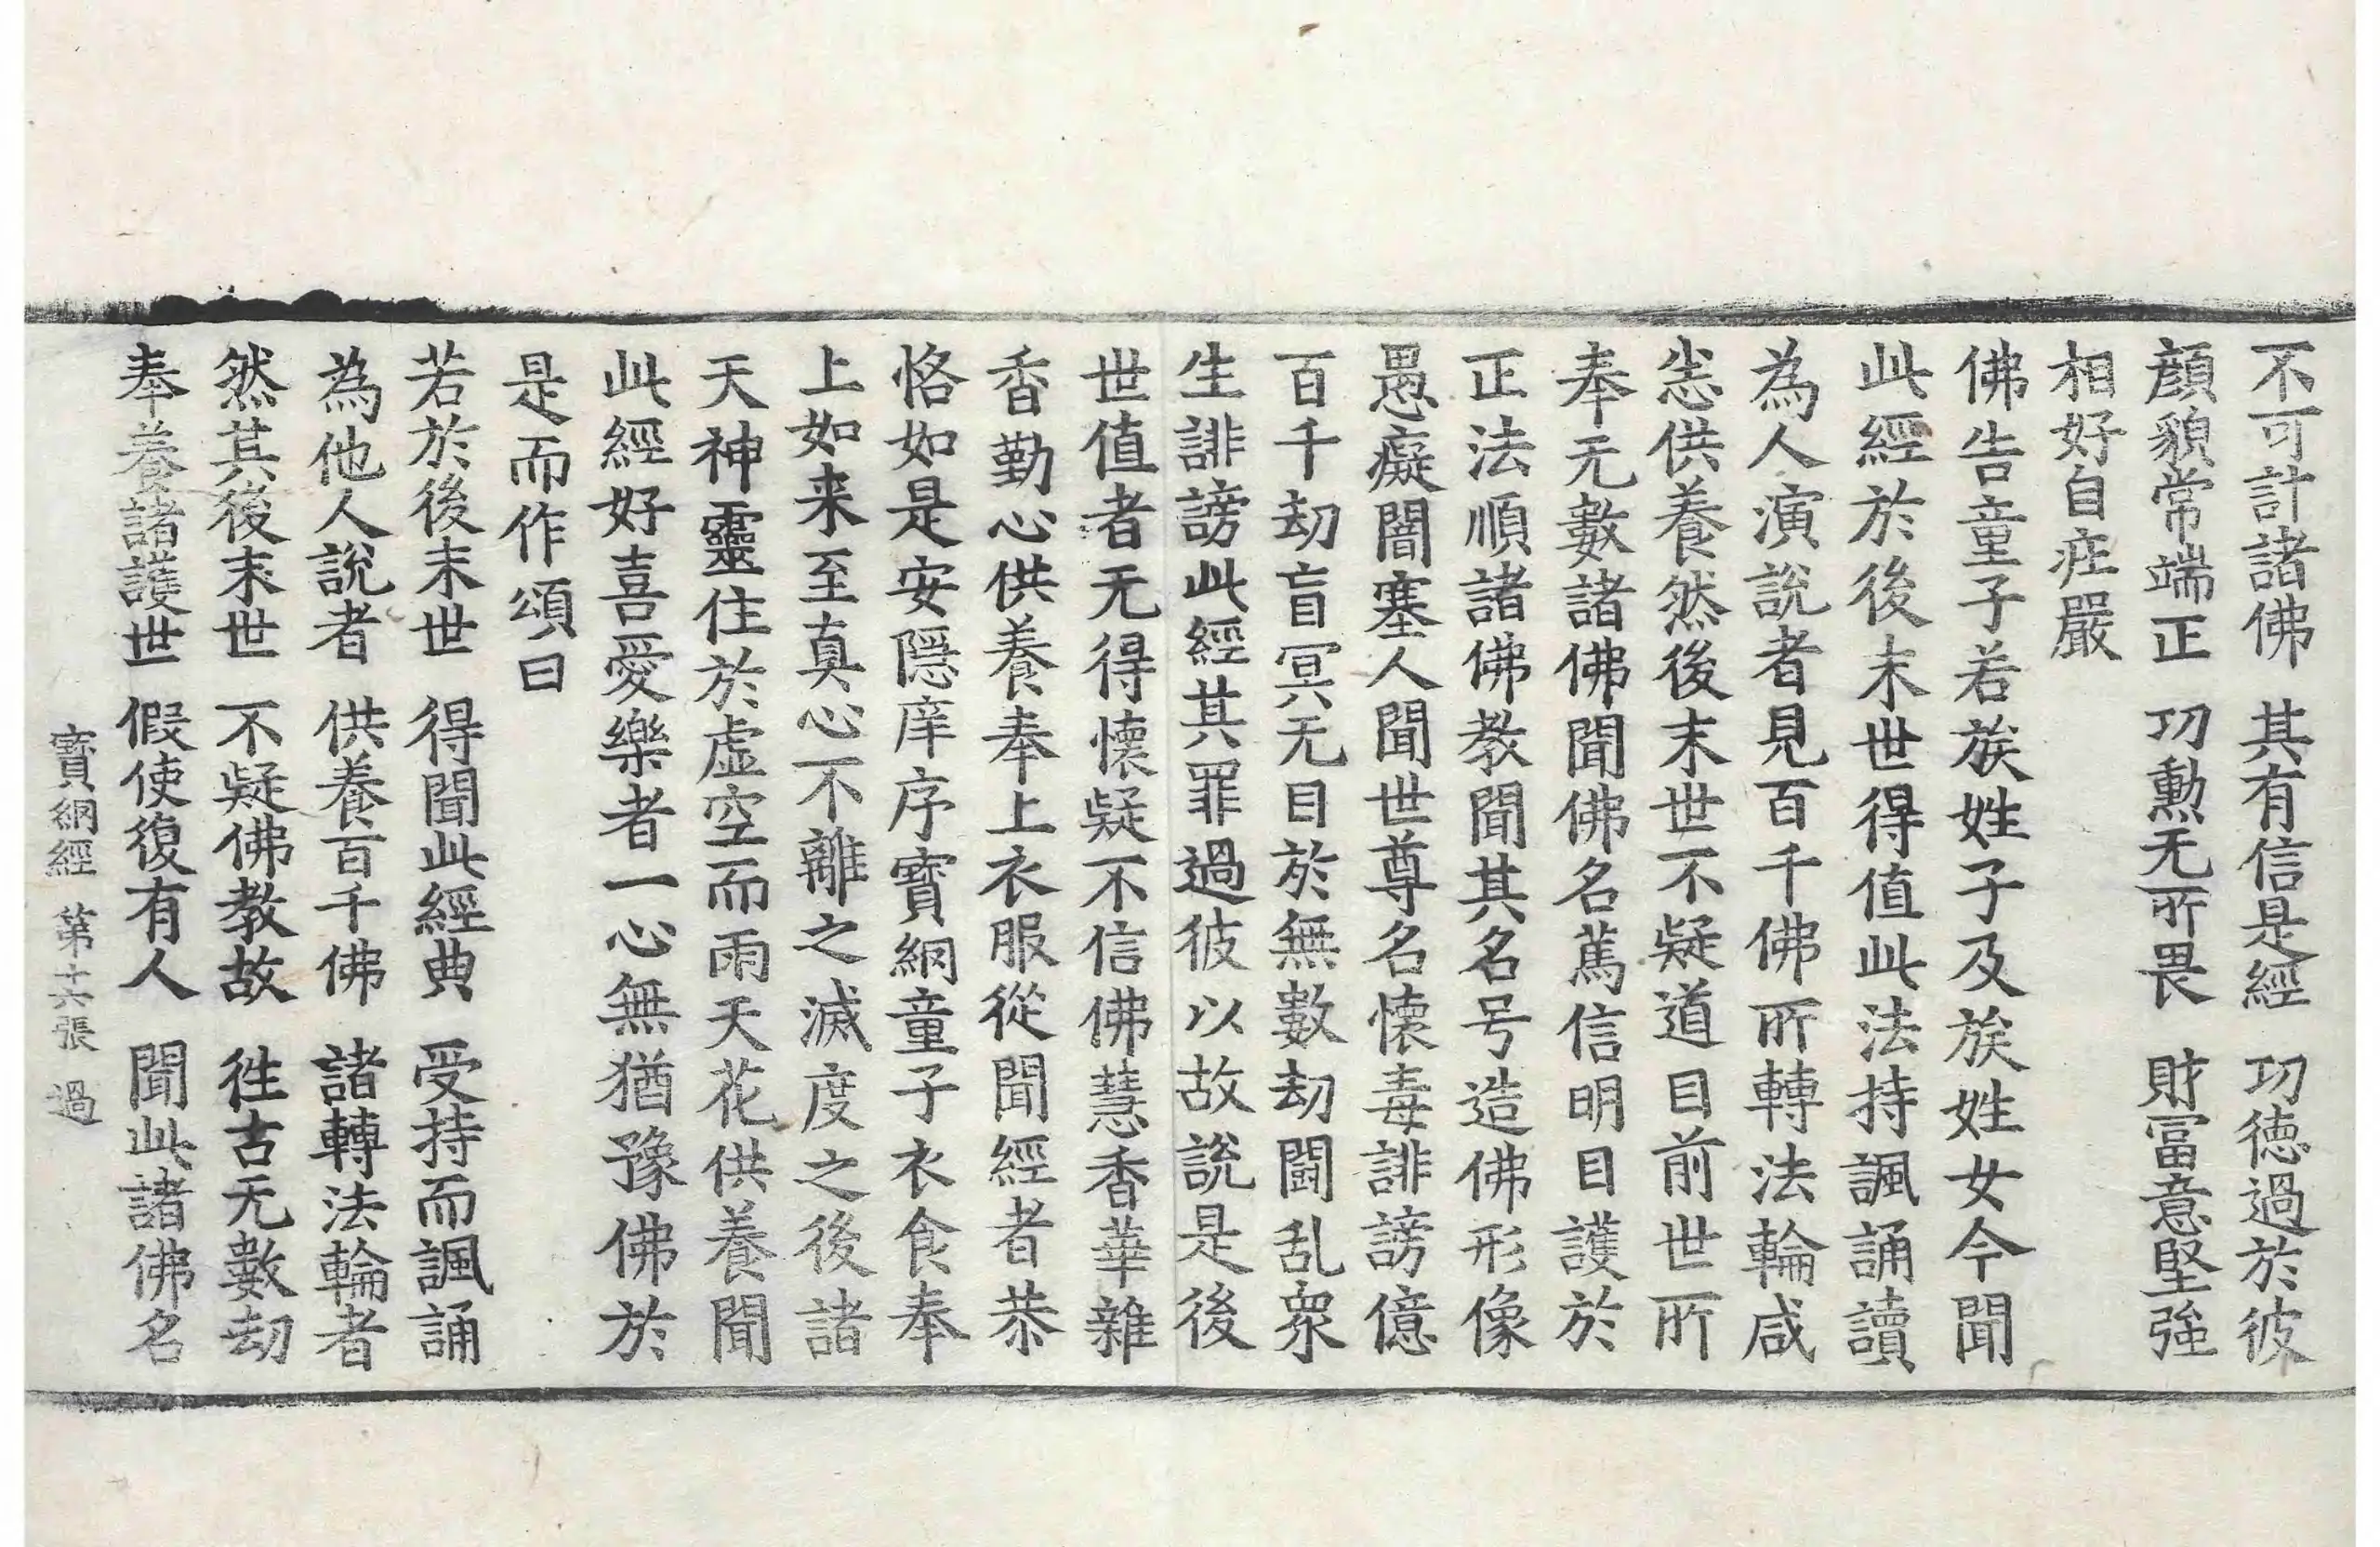 不可計諸佛　其有信是經　功德過於彼
顔貌常端正　功勳无所畏　財富意堅強
相好自庄嚴
佛告童子若族姓子及族姓女今聞
此經於後末世得值此法持諷誦讀
為人演說者見百千佛所轉法輪咸
恙供養然後末世不疑道目前世所
奉无數諸佛聞佛名篤信明目護於
正法順諸佛教聞其名号造佛形像
愚癡闇塞人聞世尊名懷毒誹謗億
百千劫盲冥无目於無數劫鬪乱衆
生誹謗此經其罪過彼以故說是後
世值者无得懷疑不信佛慧香華雜
香勤心供養奉上衣服從聞經者恭
恪如是安隱庠序寶網童子衣食奉
上如来至真心不離之滅度之後諸
天神靈住於虛空而雨天花供養聞
此經好喜愛樂者一心無猶豫佛於
是而作頌曰
若於後末世　得聞此經典　受持而諷誦
為他人說者　供養百千佛　諸轉法輪者
然其後末世　不疑佛教故　徃古无數劫
奉養諸護世　假使復有人　聞此諸佛名
寶網經　第十六張　過